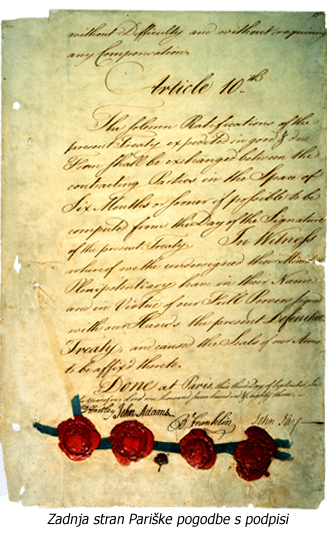 without Difficulty and without requiring
any Compensation.
Article 10.th
The solemn Ratifications of the
present Treaty expedited in good & due
Form shall be exchanged between the
contracting Parties in the Space of
Six Months or sooner if possible to be
computed from the Day of the Signature
of the present Treaty. In Witness
whereof we the undersigned their Ministers
Plenipotentiary have in their Name
and in Virtue of our Full Powers signed
with our Hands the present Definitive
Treaty, and caused the Seals of our Arms
to be affix'd thereto.
Done at Paris, this third Day of September, In
the Year of our Lord one thousand seven hundred & eighty three.
D Hartley John Adams. B Franklin John Jay
Zadnja stran Pariške pogodbe s podpisi